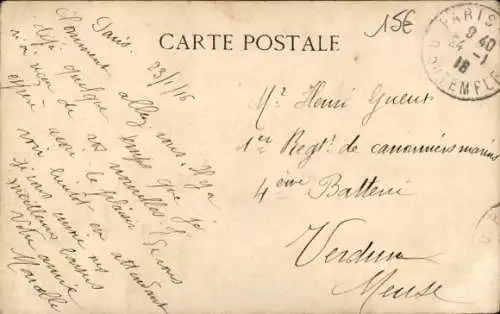 CARTE POSTALE
15€
PARIS
9 40
24 -1
16
R. DU TEMPLE
Paris. 23/1/16
Comment allez vous. Il y a
déjà quelque temps que je
n'ai rien de vos nouvelles. J
espère avoir le plaisir de vous
voir bientôt en attendant
meilleurs baisers
Votre amie
Marcelle
Mr Henri Gueux
1er Regt. de canonniers marins
4ème Batterie
Verdun
Meuse